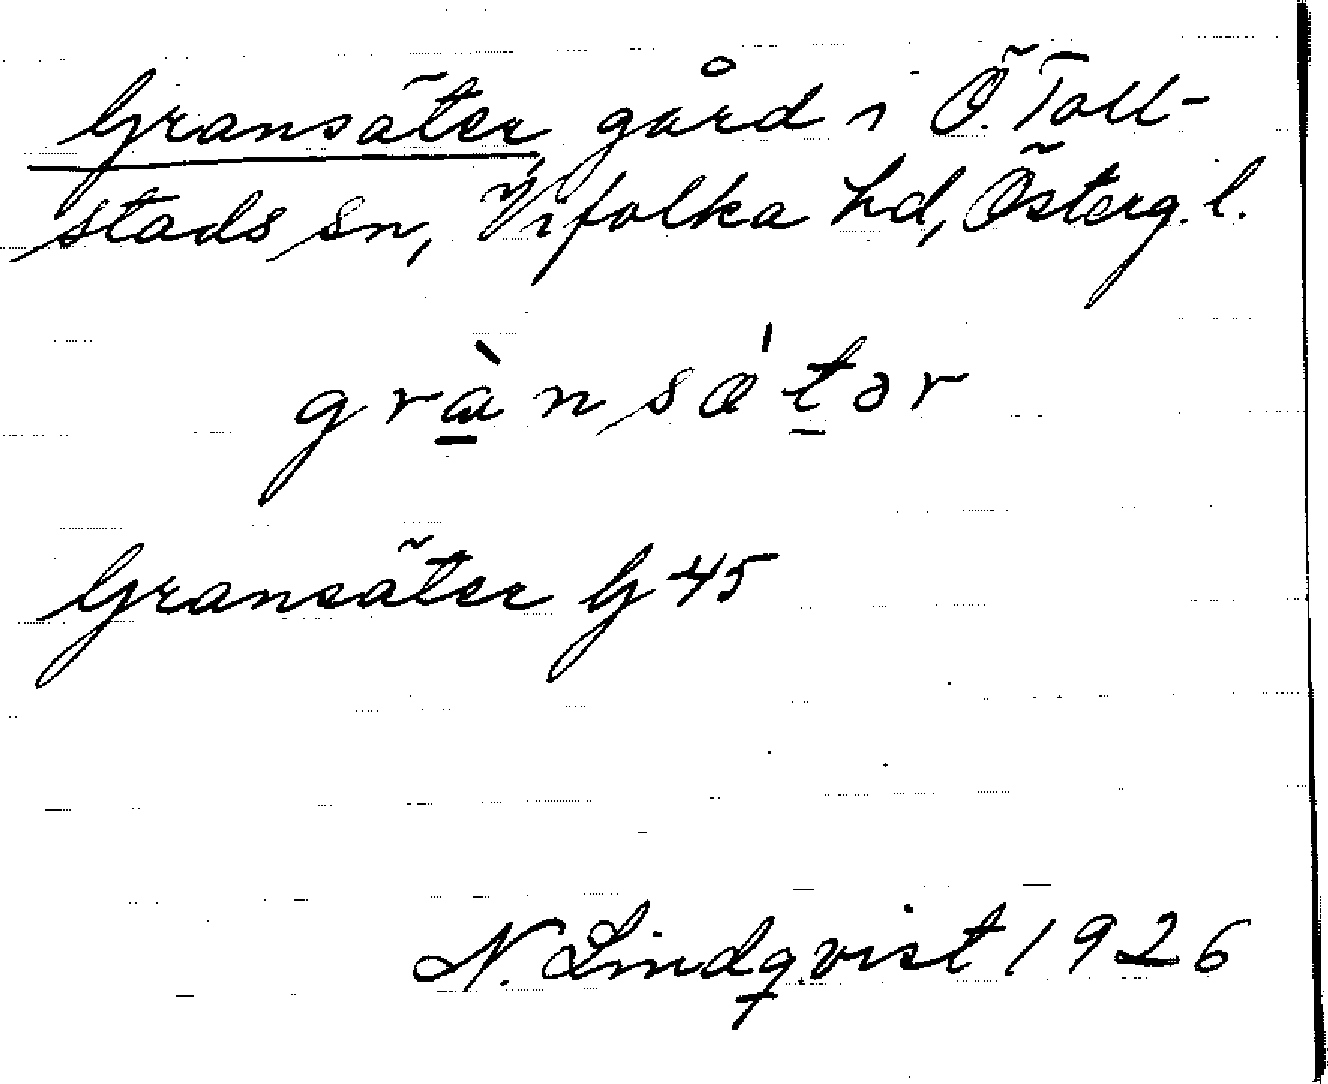 Gransäter, gård i Ö. Toll-
stads sn, Vifolka hd, Österg. l.
grànsǽtər
Gransäter G 45
N. Lindqvist 1926